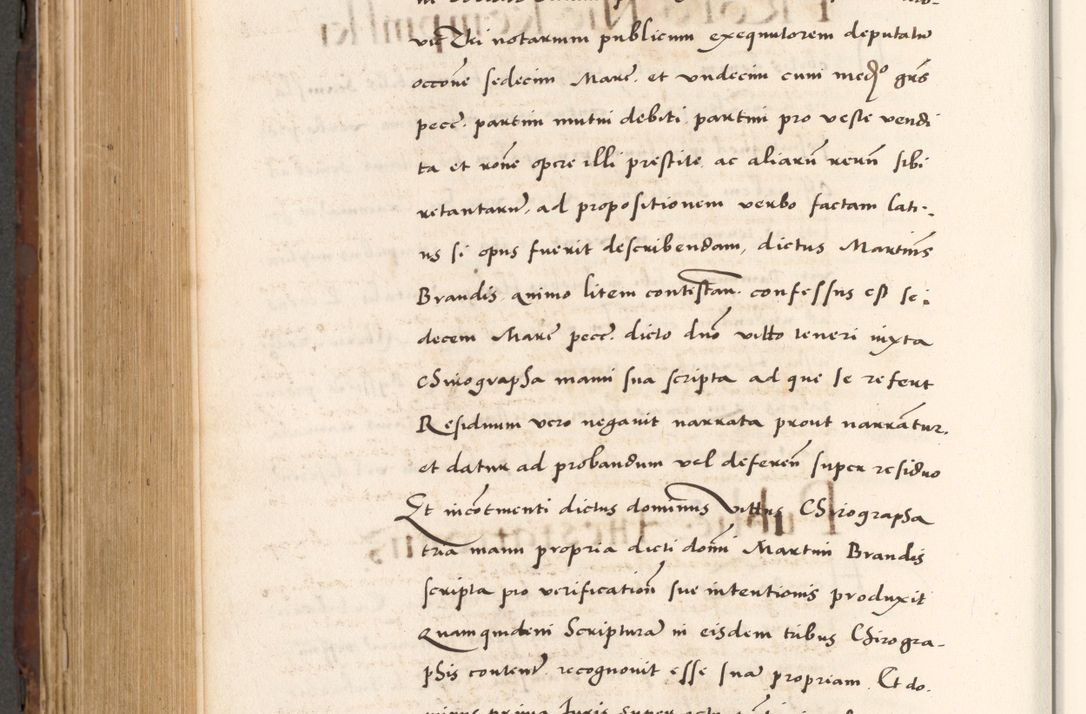 notarium publicum exequutorem deputatū
occōne sedecim Marc. et vndecim cum medio grs
pecc. partim mutui debiti, partim pro veste vendi
ta et rōne opere illi prestite, ac aliarū rerū sibi
retantarū, ad propositionem verbo factam lati-
us si opus fuerit describendam, dictus Martinus
Brandis animo litem contestan. confessus est se-
decem Marc pecc. dicto dno vitto teneri iuxta
Chirographa manu sua scripta ad que se refert
Residuum vero negauit narrata prout narrātur.
et datur ad probandum vel deferen super residuo
Et incōtinenti dictus dominus Vittus Chirographa
tria manu propria dicti domi Martini Brandis
scripta pro verification sue intentionis produxit
Quamquidem Scripturā in eisdem tribus Chirogra-
phis content. recognouit esse suā propriam. Et do-